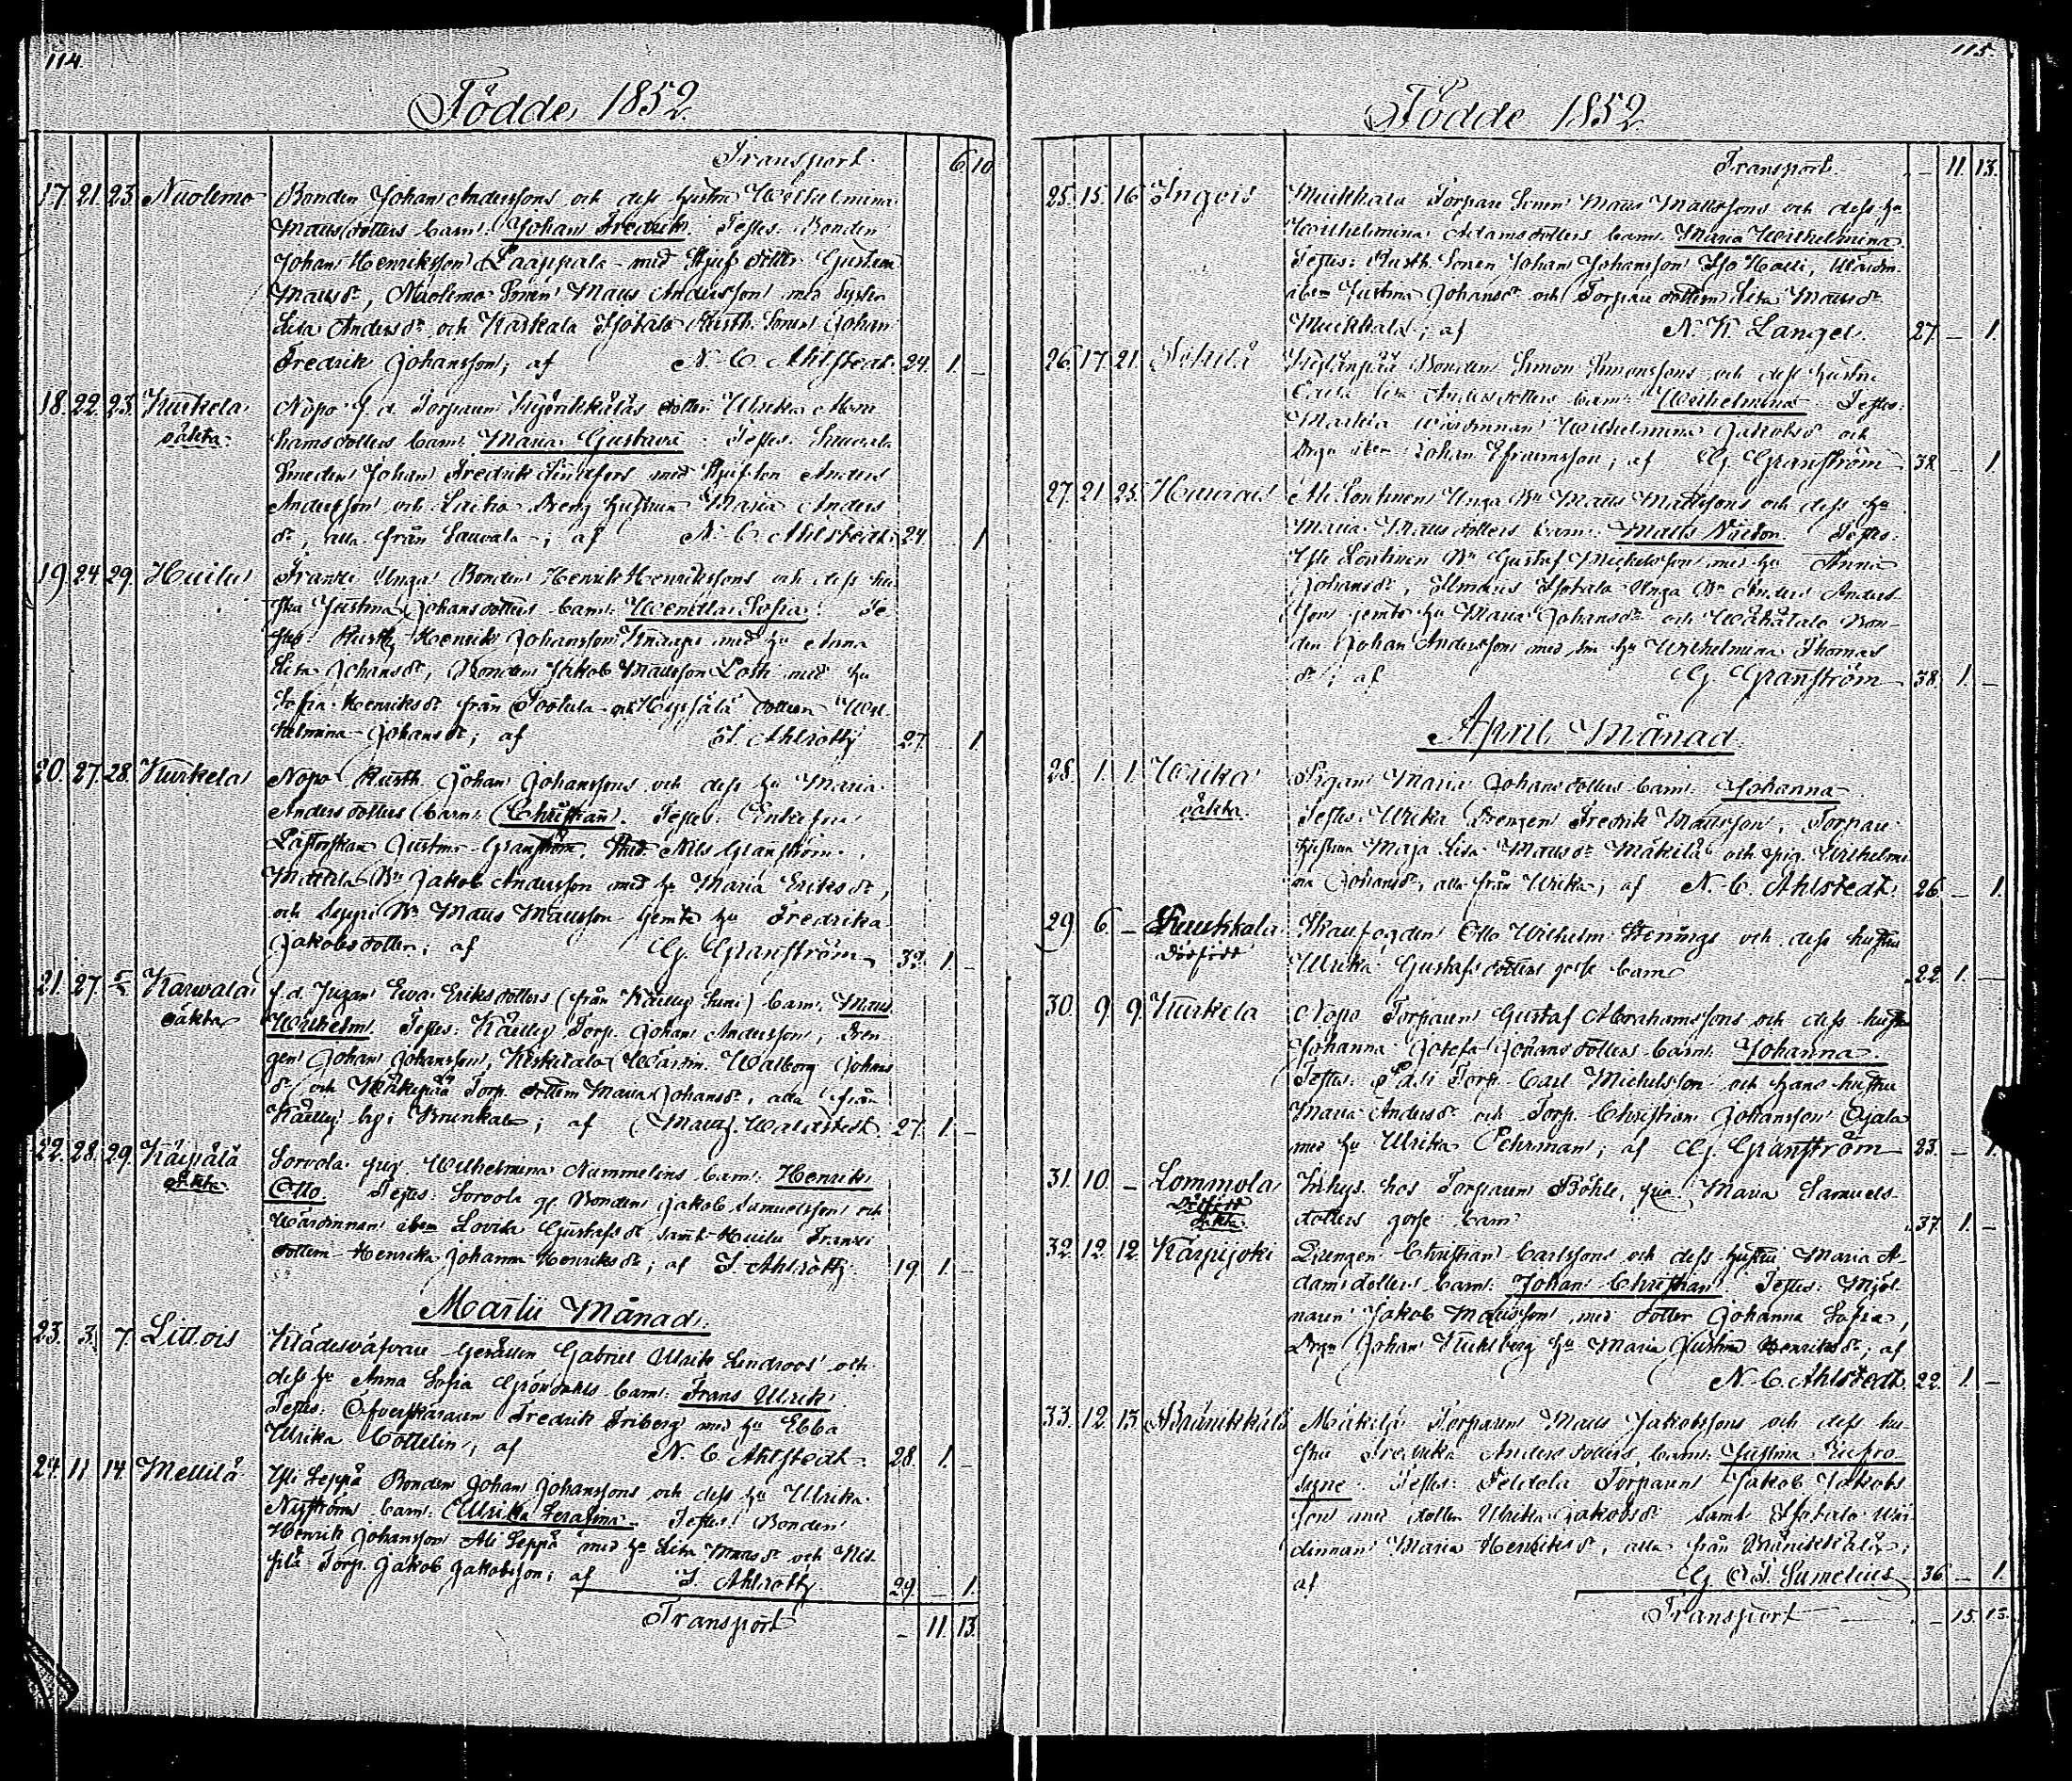 114.
Födde 1852.
Transport. 6. 10.
17. 21. 23. Nuolemo Bonden Johan Anderssons och dess hustru Wilhelmina
Matts dotters barn: Johan Fredrik. Testes: Bonden
Johan Henriksson Laappala med Styf dotter Gustava
Mattsdr, Nuolemo Sonen Matts Andersson med Syster
Lisa Andersdr och Karkala Isotalo Rusth. Sonen Johan
Fredrik Johansson; af N. C. Ahlstedt. 24. 1. –
18. 22. 23. Kurkela Nopo f. d. Torparen dotter Ulrika Abra
oäkta. hams dotters barn: Maria Gustava. Testes: Sauvala
Smeden Johan Fredrik med Styfson Anders
Andersson och Laitio Dreng hustrun Maria Anders
dr, alla från Sauvala; af N. C. Ahlstedt. 24. 1
19. 24. 29. Huilu Franki Unga Bonden Henrik Henrikssons och dess hu
stru Justina Johans dotters barn: Wendla Sofia. Te
stes: Rusth. Henrik Johansson Knaapi med hu Anna
Lisa Johansdr, Bonden Jakob Mattsson med hu
Sofia Henriksdr från och dottern Wil
helmina Johansdr; af Ahlroth 27. 1.
20. 27. 28. Kurkela Nopo Rusth. Johan Johanssons och dess hu Maria
Anders dotters barn: Christian. Testes: Enkefru
Justina Granström, Stud. Nils Granström,
Mattila Bn Jakob Andersson med hu Maria Eriksdr,
och Seppi Bn Matts Mattsson jemte hu Fredrika
Jakobs dotter; af Cg. Granström 32. 1. –
21. 27. Karvala f. d. Jugan Ewa Eriks dotters (från ) barn: Matts
oäkta Wilhelm. Testes: Torp. Johan Andersson, Dren
gen Johan Johansson, Keskitalo Wärdin. Walborg Johans
dr och Torp. dottern Maria Johansdr, alla från
by i Brunkala; af Wallstedt. 27. 1. –
22. 28. 29. Käipälä Sorvola pig. Wilhelmina Nummelins barn: Henrik
oäkta. Otto. Testes: Sorvola gl. Bonden Jakob Samuelsson och
Wärdinnan ibm Lovisa Gustafsdr samt Huilu Franki
dottern Henrika Johanna Henriksdr; af J. Ahlroth 19. 1. –
Martii Månad.
23. 3. 7. Littois Klädesväfvare Gesällen Gabriel Ulrik Lindroos' och
dess hu Anna Sofia Gröndahls barn: Frans Ulrik.
Testes: Öfverskäraren Fredrik Friberg med hu Ebba
Ulrika Cottelin; af N. C. Ahlstedt. 28. 1. –
24. 11. 14. Mellilä Yli Seppä Bonden Johan Johanssons och dess hu Ulrika
Nyströms barn: Ulrika Serafina. Testes: Bonden
Henrik Johansson Ali Seppä med hu Lisa Mattsdr och
Torp. Jakob Jakobsson; af J. Ahlroth 29. – 1.
Transport – 11. 13.
115.
Födde 1852.
Transport. – 11. 13.
25. 15. 16. Ingois Muikkala Torpare Sonen Matts Mattssons och dess hu
Wilhelmina Adams dotters barn: Maria Wilhelmina.
Testes: Rusth. Sonen Johan Johansson Iso Halli, Wärdin.
ibm Justina Johansdr och Torpare dottern Lisa Mattsdr
Muikkala; af N. K. Langel. 27. – 1.
26. 17. 21. Bonden Simon Simonssons och dess hustru
Lisa Anders dotters barn: Wilhelmina. Testes:
Mattila Wärdinnan Wilhelmina Jakobsdr och
Dryn ibm Johan Efraimsson; af Cg. Granström 38. – 1
27. 21. 25. Ali Lontinen Unga Bn Matts Mattssons och dess hu
Maria Matts dotters barn: Matts Victor. Testes:
Yli Lontinen Bn Gustaf Mickelsson med hu Anna
Johansdr, Isotalo Unga Bn Anders Anders
son jemte hu Maria Johansdr och Wähätalo Bon-
den Johan Andersson med sin hu Wilhelmina Thomas
dr; af Cg. Granström 38. 1. –
April Månad.
28. 1. 1. Wirka Pigan Maria Johans dotters barn: Johanna.
oäkta. Testes: Wirka Drengen Fredrik Mattsson, Torpare
hustrun Maja Lisa Mattsdr Mäkilä och pig. Wilhelmi
na Johansdr, alla från Wirka; af N. C. Ahlstedt. 26. – 1.
29. 6. – Raukkala Skaufogden Otto Wilhelm och dess hustru
dödfödt Ulrika Gustafs dotters gosse barn 22. 1. –
30. 9. 9. Kurkela Nopo Torparen Gustaf Abrahamssons och dess hustru
Johanna Josefa Johans dotters barn: Johanna.
Testes: Torp. Carl Mickelsson och hans hustru
Maria Andersdr och Torp. Christian Johansson Ojala
med hu Ulrika Öhrman; af Cg. Granström 23. – 1.
31. 10. – Lommola Inhys. hos Torparen Böhle, pig. Maria Samuels
Dödfödt oäkta dotters gosse barn 37. 1. –
32. 12. 12. Karpijoki Drengen Christian Carlssons och dess hustru Maria A-
dams dotters barn: Johan Christian. Testes: Mjöl
naren Jakob Mattsson med dotter Johanna Sofia,
Dryn Johan hu Maria Justina Henriksdr; af
N. C. Ahlstedt. 22. 1. –
33. 12. 13. Mäkilä Torparen Matts Jakobssons och dess hu
stru Fredrika Anders dotters barn: Justina Eufro
syne. Testes: Torparen Jakob Jakobs
son med dotter Ulrika Jakobsdr samt Isotalo Wär
dinnan Maria Henriksdr, alla från
af Cg. Sumelius 36. – 1.
Transport – 15. 13.